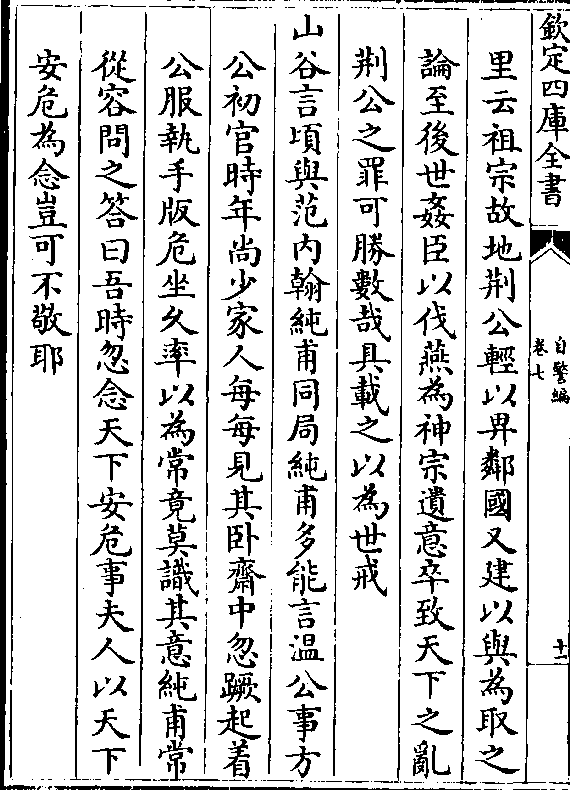 欽定四庫全書
自警編
卷七
十一
里云祖宗故地荆公輕以畀鄰國又建以與為取之
論至後世姦臣以伐燕為神宗遺意卒致天下之亂
荆公之罪可勝數哉具載之以為世戒
山谷言頃與范内翰純甫同局純甫多能言温公事方
公初官時年尚少家人每每見其卧齋中忽蹶起着
公服執手版危坐乆率以為常竟莫識其意純甫常
從容問之答曰吾時忽念天下安危事夫人以天下
安危為念豈可不敬耶